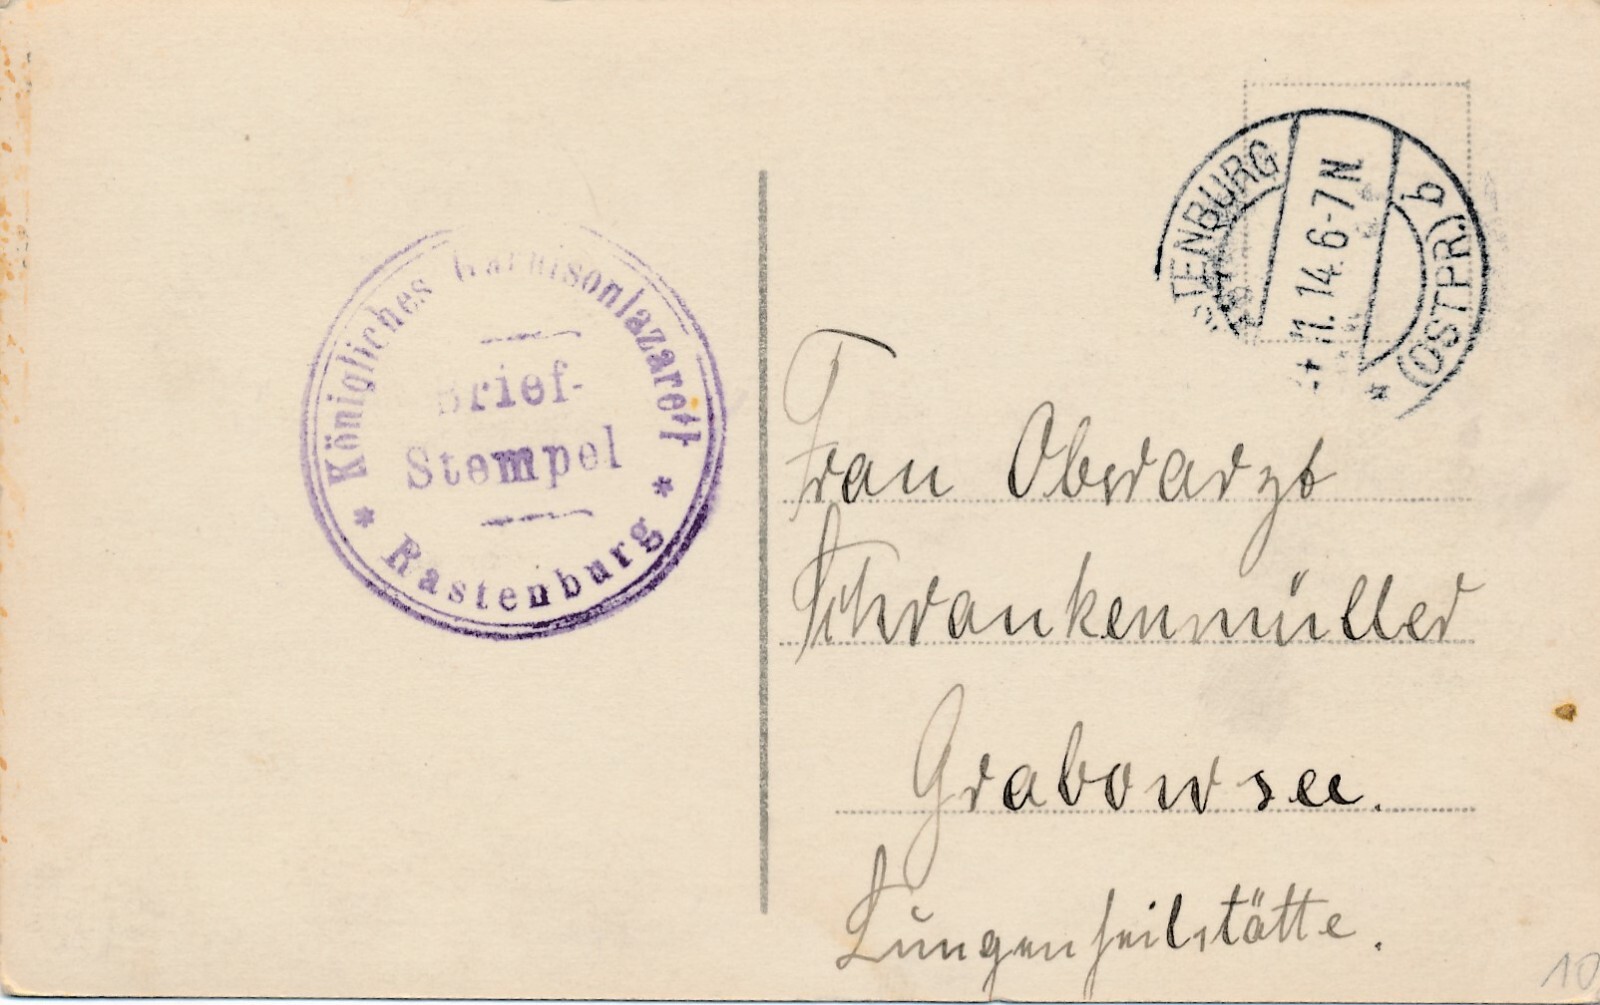 Königliches Garnisonlazarett
Brief-
Stempel
* Rastenburg *
TENBURG
11.14.6-7N
(OSTPR.) b
*
Frau Oberarzt
Schrankenmüller
Grabowsee.
Lungenheilstätte.
10